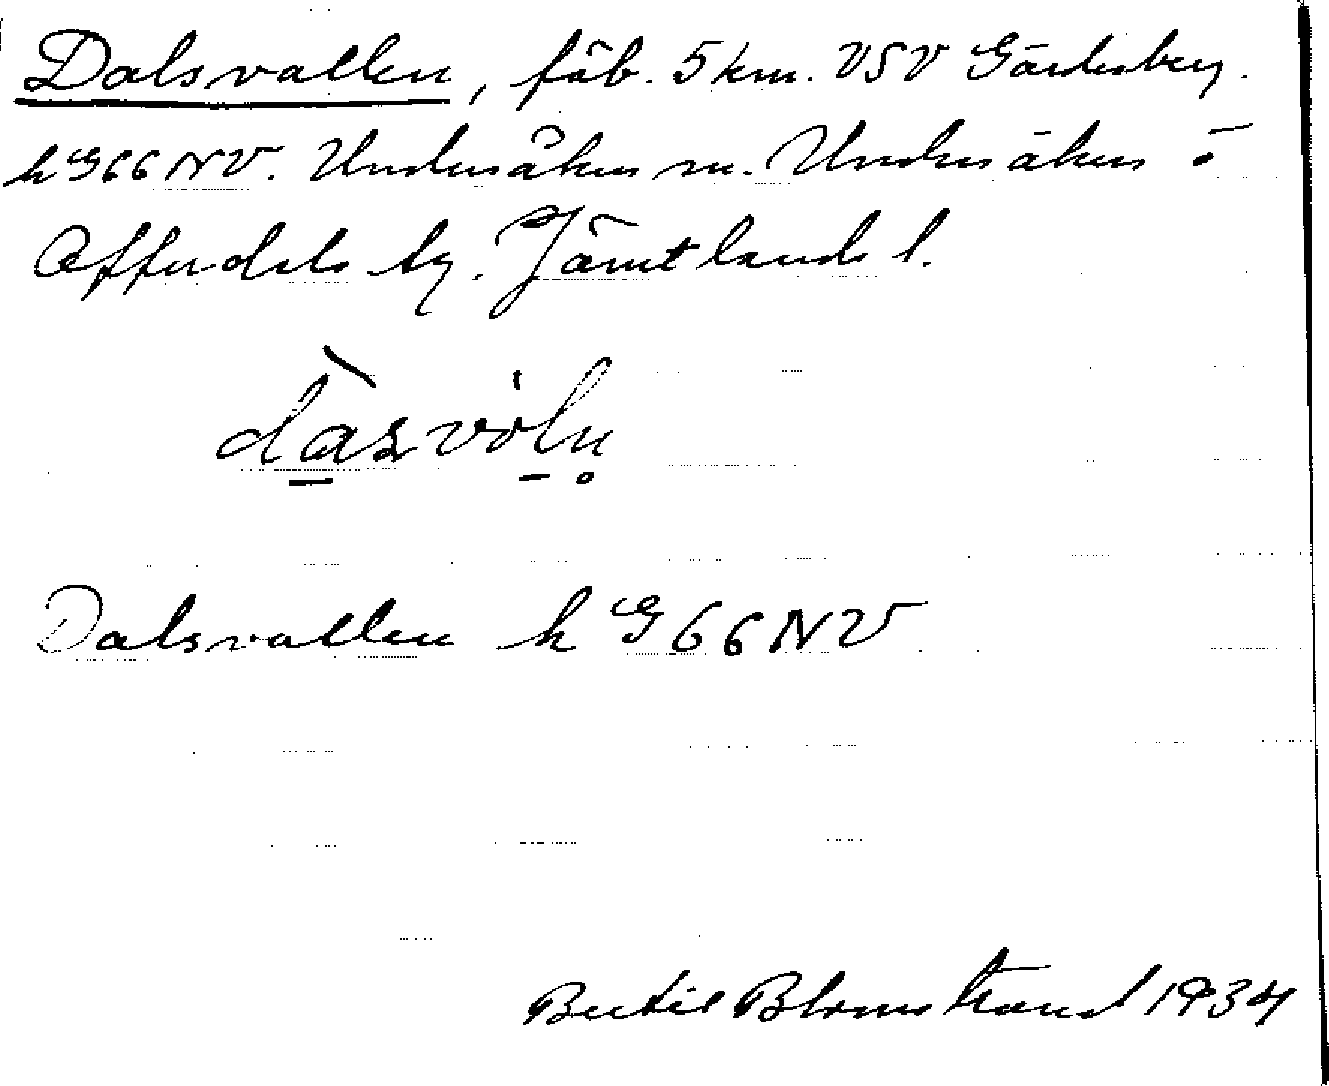 Dalsvallen, fäb. 5 km. VSV Gärdesberg.
k G66NV. Undersåkers sn. Undersåkers o
Offerdals tg. Jämtlands l.
dàsvòln̥
Dalsvallen k G66NV
Bertil Blomstrand 1934